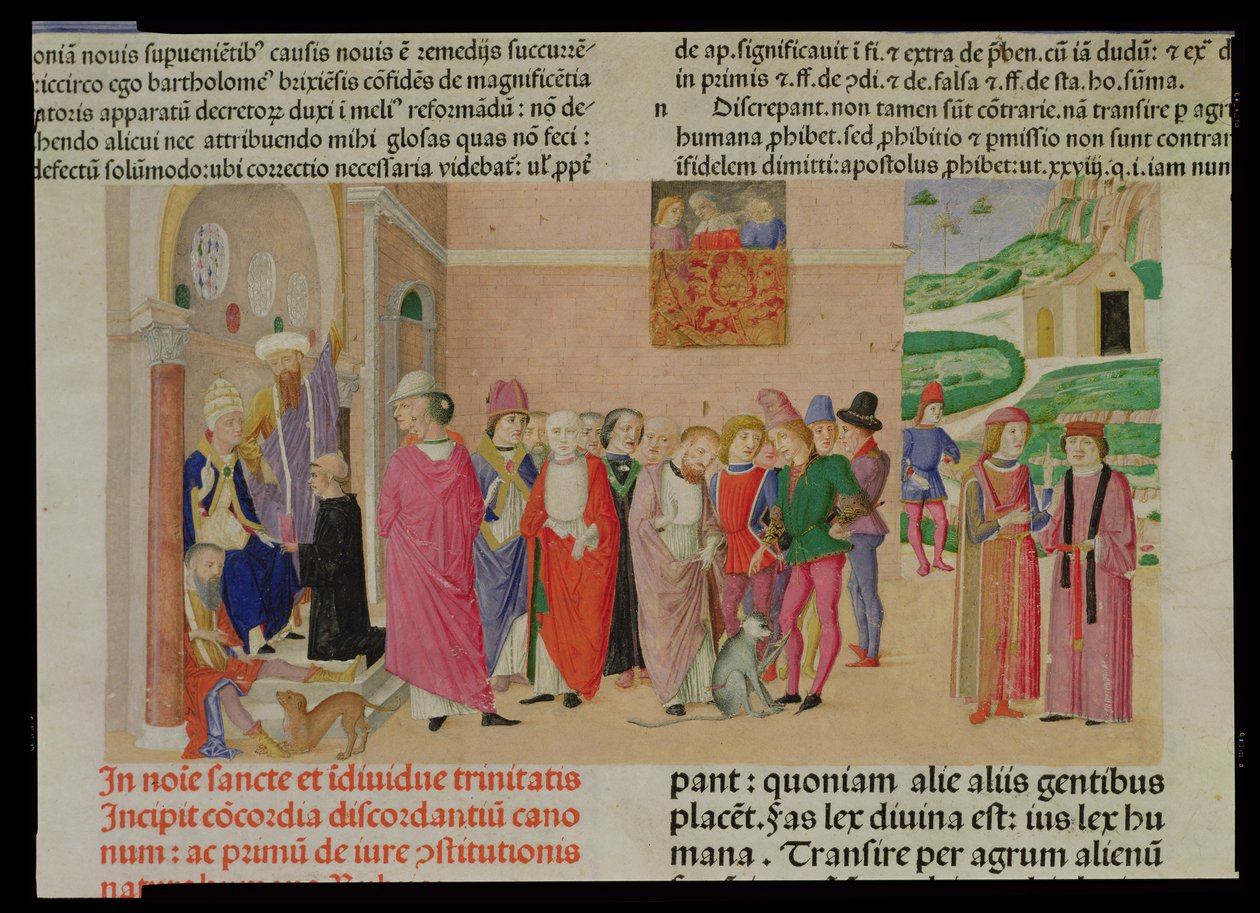 oniā nouis supueniētib⁹ causis nouis ē remedijs succurrē⸗
iccirco ego bartholome⁹ brixiēsis cōfidēs de magnificētia
atoris apparatū decretoꝝ duxi ī meli⁹ reformādū : nō de⸗
hendo alicui nec attribuendo mihi glosas quas nō feci :
defectū solūmodo: ubi correctio necessaria videbat̄: ul̄ ꝓpt̄
de ap. significauit ī fi. ⁊ extra de p̄ben. cū iā dudū: ⁊ ex̄ d
in primis ⁊. ff. de ↄdi. ⁊ de. falsa ⁊. ff. de sta. ho. sūma.
n Discrepant. non tamen sūt cōtrarie. nā transire p agr
humana ꝓhibet. sed ꝓhibitio ⁊ pmissio non sunt contrar
īfidelem dimitti: apostolus ꝓhibet: ut. xxviij. q. i. iam nun
In noīe sancte et īdiuidue trinitatis
Incipit cōcordia discordantiū cano
num : ac primū de iure ↄstitutionis
pant : quoniam alie aliis gentibus
placēt. §. as lex diuina est: ius lex hu
mana . Transire per agrum alienū